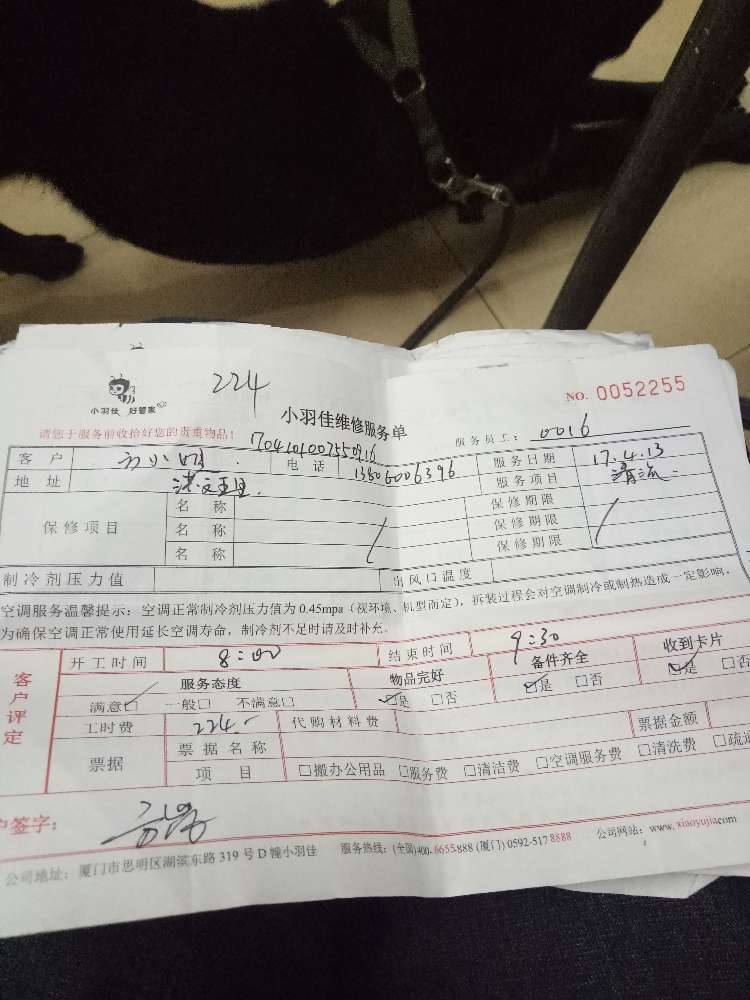 224
小羽佳 好管家
小羽佳维修服务单
NO. 0052255
请您于服务前收拾好您的贵重物品!
服务员工: 0016
客户 电话 13806006396 服务日期 17.4.13
地址 洪文五里 服务项目 清流
保修项目 名称 保修期限
名称 保修期限
名称 保修期限
制冷剂压力值 出风口温度
空调服务温馨提示: 空调正常制冷剂压力值为 0.45mpa (视环境、机型而定), 拆装过程会对空调制冷或制热造成一定影响,
为确保空调正常使用延长空调寿命, 制冷剂不足时请及时补充.
客户评定
开工时间 8:00 结束时间 9:30
服务态度 物品完好 备件齐全 收到卡片
满意☑ 一般□ 不满意□ ☑是 □否 ☑是 □否 ☑是 □否
工时费 224.- 代购材料费
票据 票据名称 票据金额
项目 □搬办公用品 □服务费 □清洁费 □空调服务费 □清洗费 □疏通
户签字:
公司地址: 厦门市思明区湖滨东路 319 号 D 幢小羽佳 服务热线: (全国)400-6655888 (厦门) 0592-5178888 公司网站: www.xiaoyujia.com